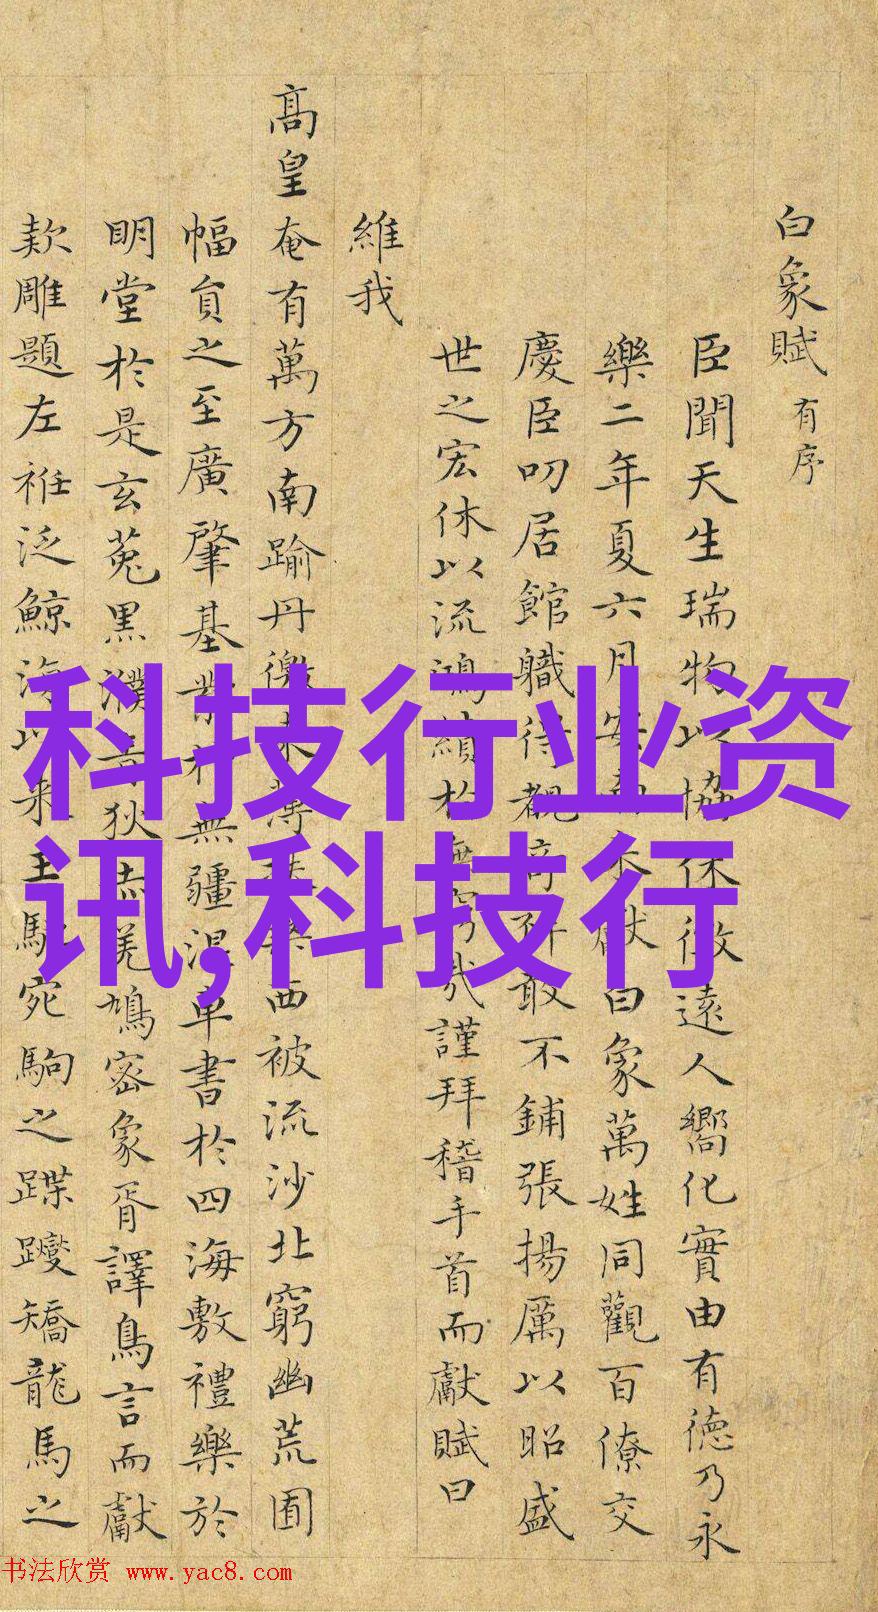 白象賦 有序
臣聞天生瑞物以協休徵遠人嚮化實由有德乃永
樂二年夏六月安南來獻白象萬姓同觀百僚交
慶臣叨居館職待覩奇敢不鋪張揚厲以昭盛
世之宏休以流鴻績於無窮哉謹拜稽手首而獻賦曰
維我
高皇奄有萬方南踰丹徼東薄西被流沙北窮幽荒圍
幅員之至廣肇基業於無疆混車書於四海敷禮樂於
明堂於是玄菟黑濮狄羌鳩密象胥譯鳥言而獻
款雕題左袵泛鯨海以來王駒宛駒之蹀躞矯龍馬之
科技行业资
讯,科技行
书法欣赏 www.yac8.com